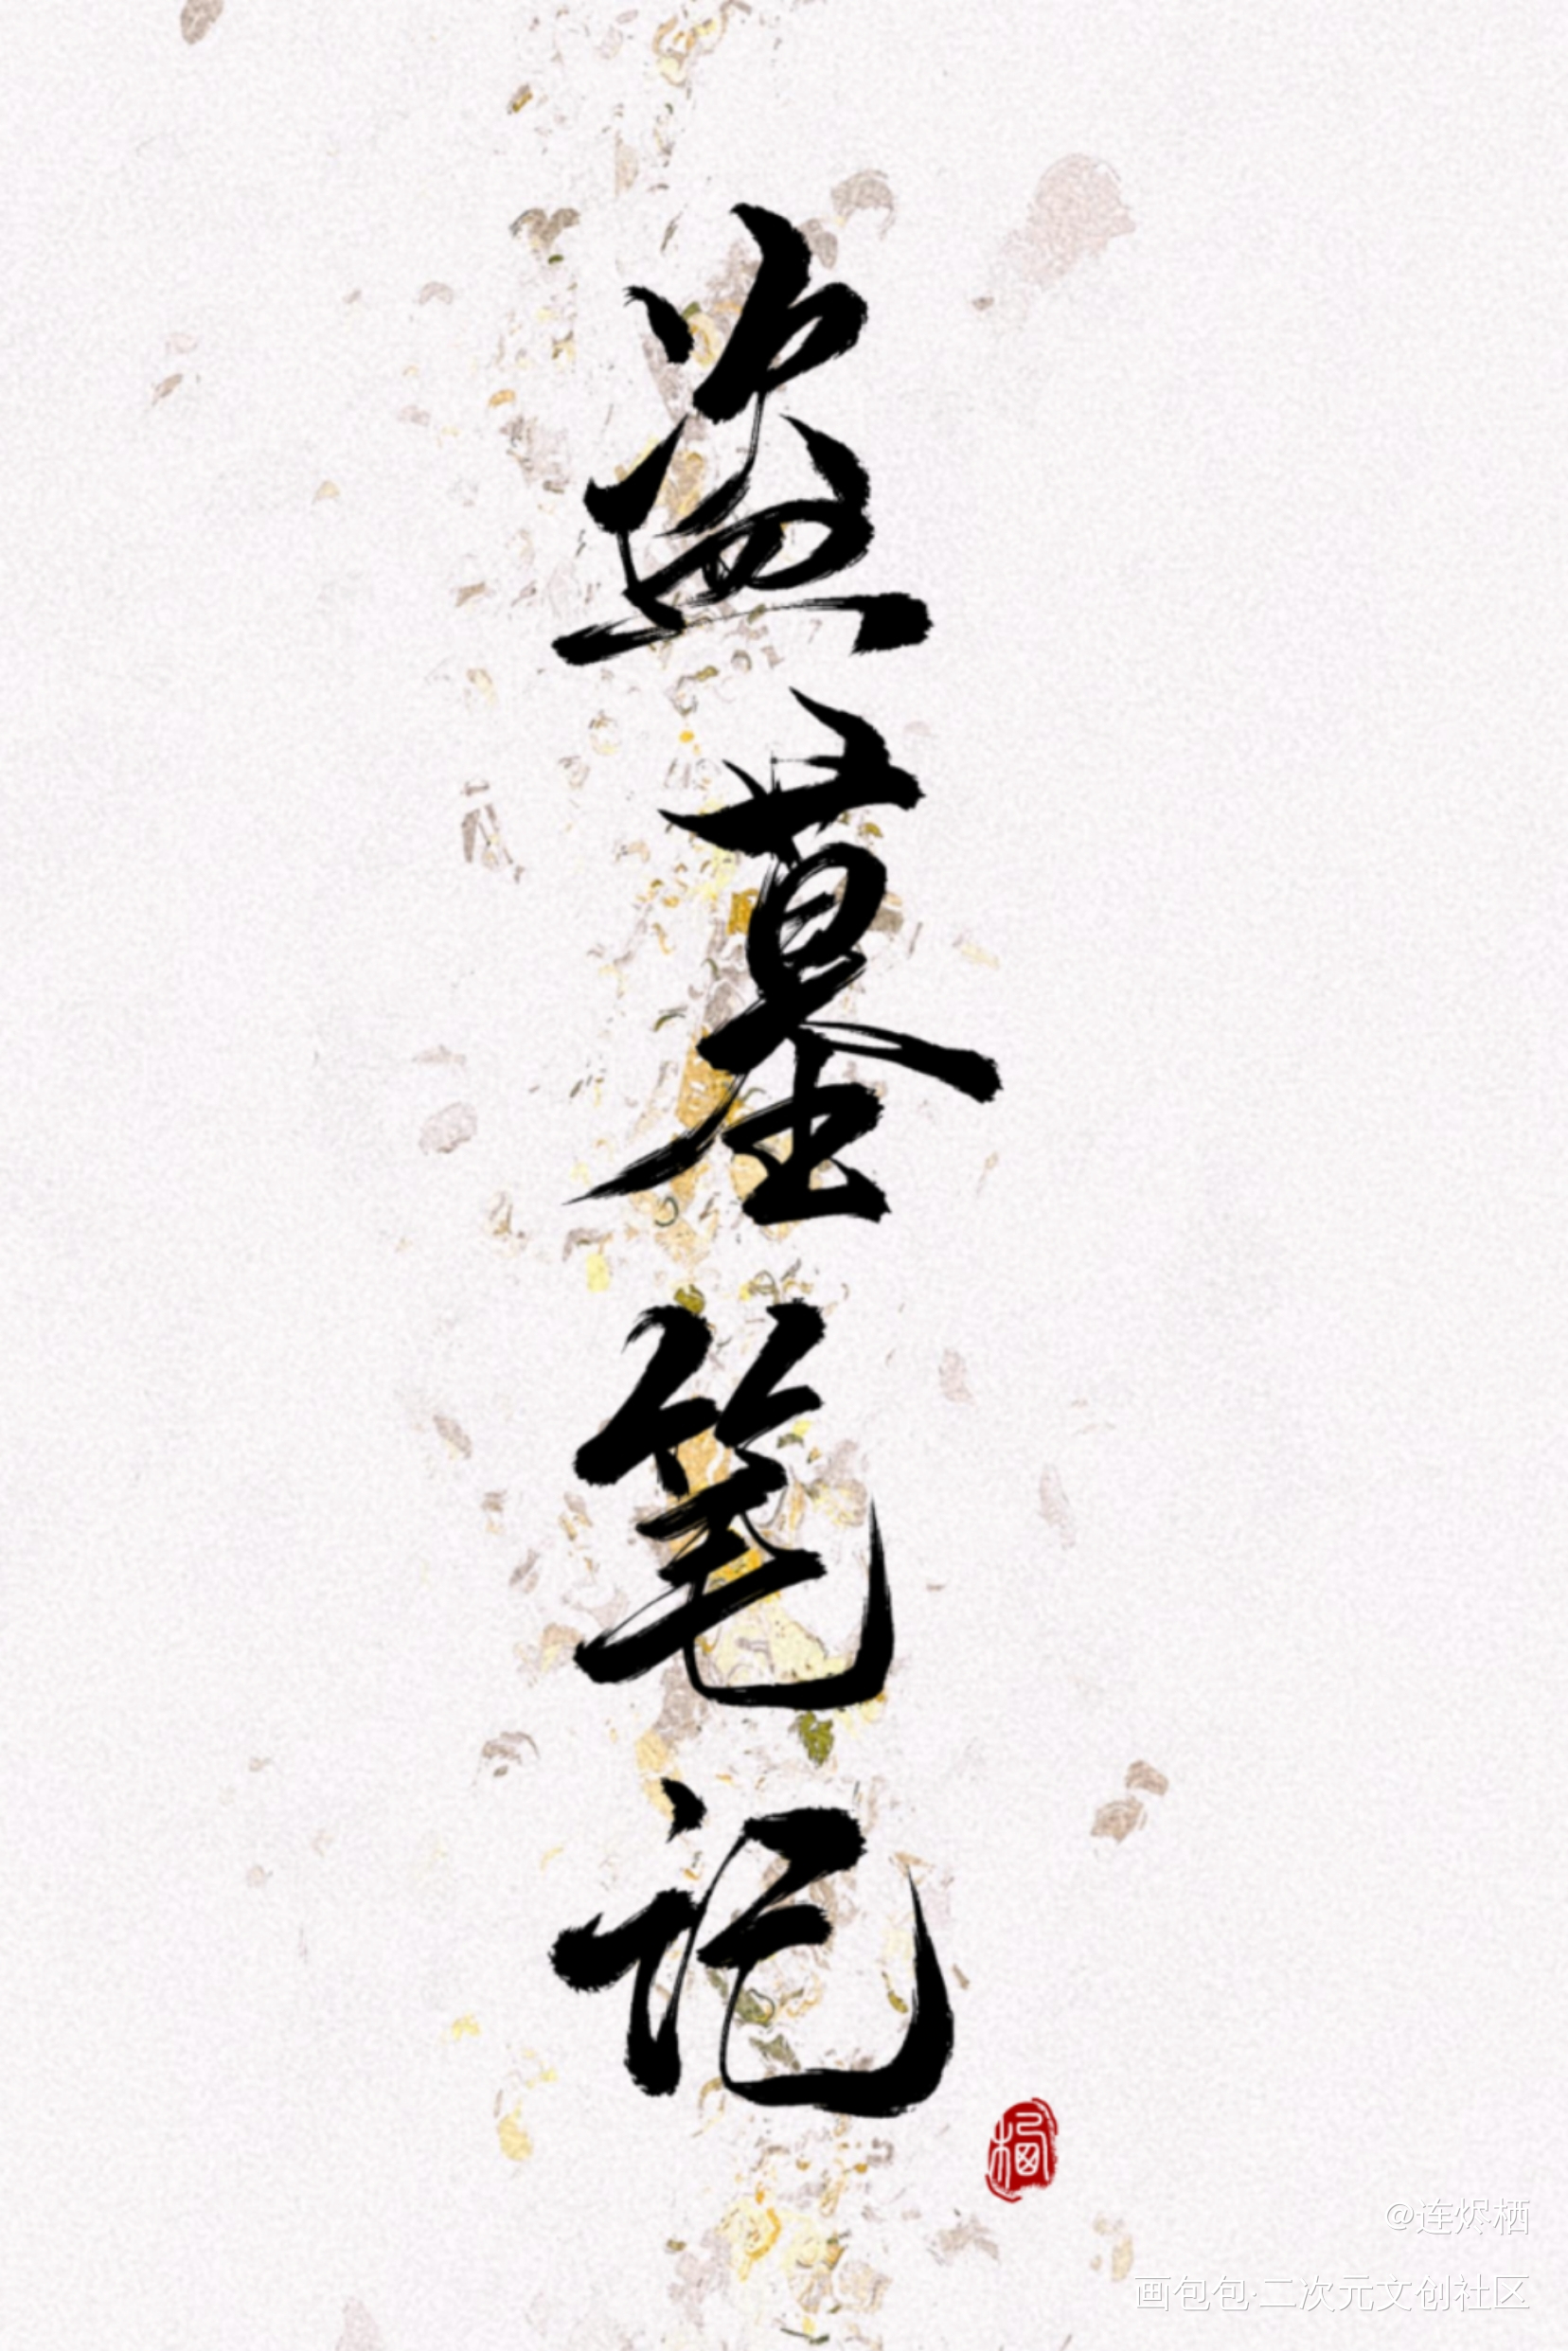 盗墓笔记
栖
@连烬栖
画包包·二次元文创社区